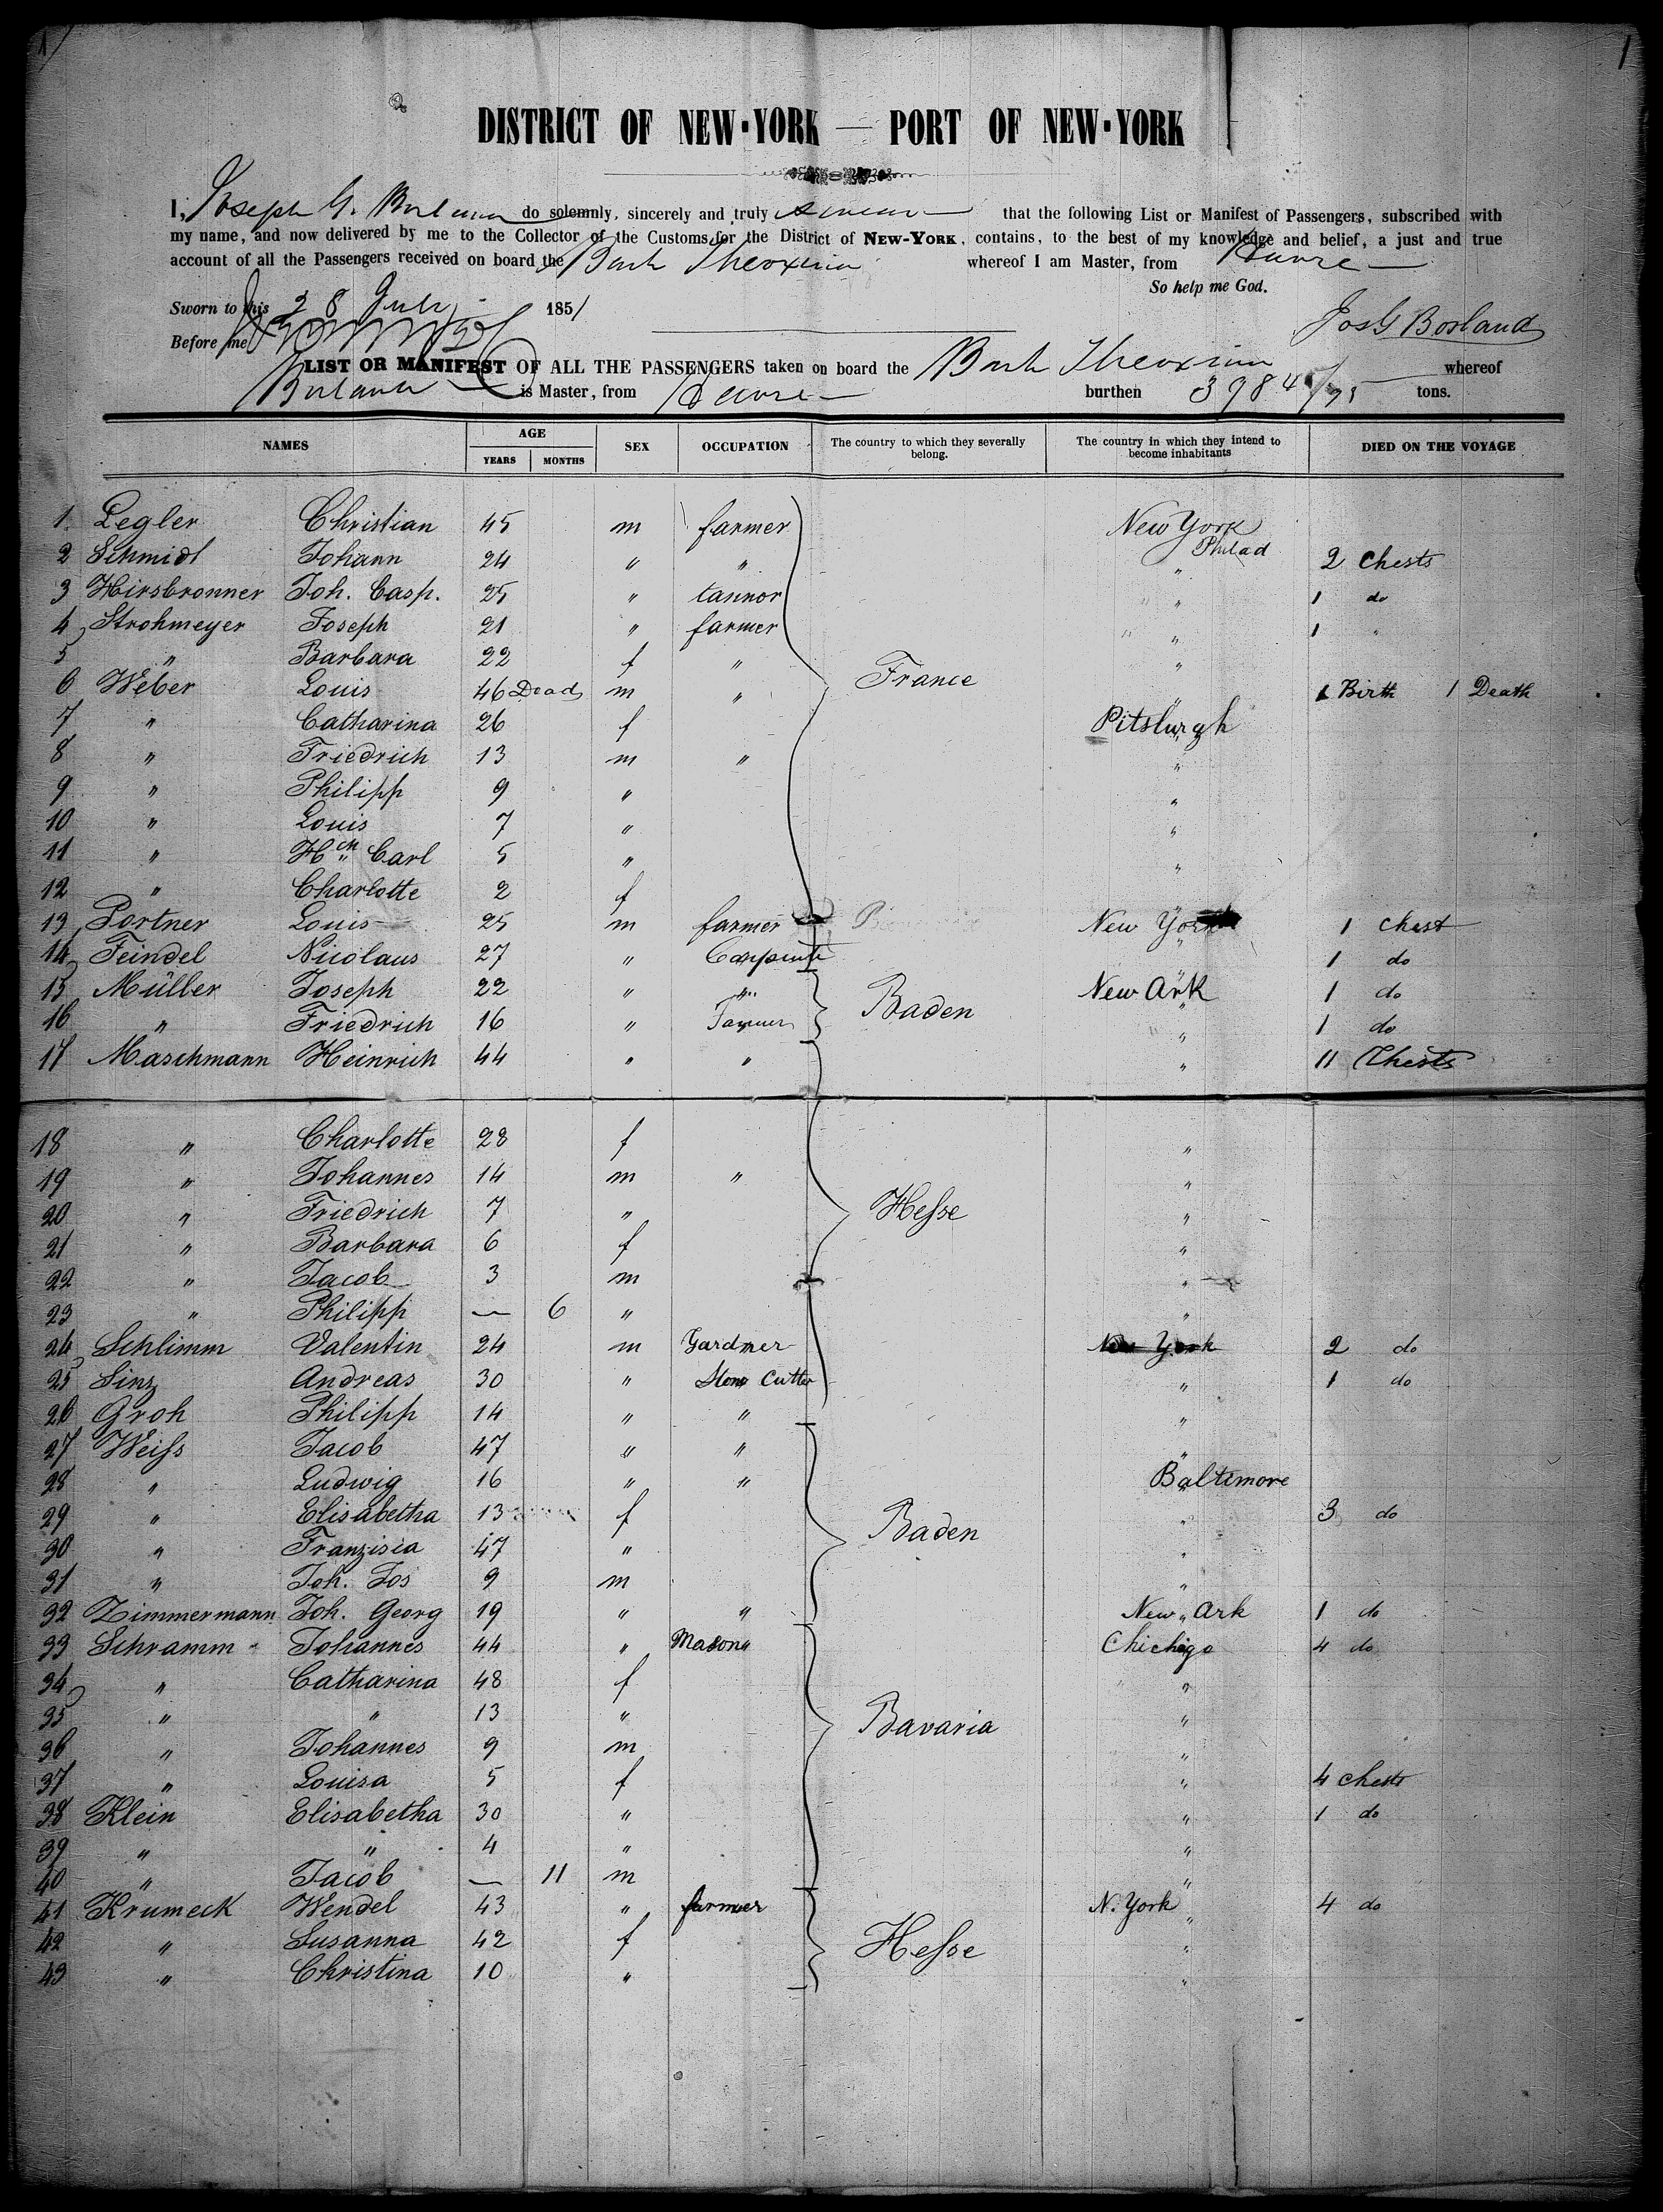 1
DISTRICT OF NEW-YORK — PORT OF NEW-YORK
I, Joseph G. Borland do solemnly, sincerely and truly swear that the following List or Manifest of Passengers, subscribed with
my name, and now delivered by me to the Collector of the Customs for the District of NEW-YORK, contains, to the best of my knowledge and belief, a just and true
account of all the Passengers received on board the Bark Theoxina whereof I am Master, from Havre
So help me God.
Sworn to this 28 July 1851
Jos G Borland
Before me
LIST OR MANIFEST OF ALL THE PASSENGERS taken on board the Bark Theoxina whereof
Borland is Master, from Havre burthen 398 tons.
NAMES AGE YEARS MONTHS SEX OCCUPATION The country to which they severally belong. The country in which they intend to become inhabitants DIED ON THE VOYAGE
1. Legler Christian 45 m farmer New York
2 Schmidt Johann 24 " " Philad " 2 Chests
3 Hirsbronner Joh. Casp. 25 " tannor " " 1 do
4 Strohmeyer Joseph 21 " farmer " " 1 "
5 " Barbara 22 f " "
6 Weber Louis 46 Dead m " France " 1 Birth 1 Death
7 " Catharina 26 f Pitsburgh
8 " Friedrich 13 m " "
9 " Philipp 9 " "
10 " Louis 7 " "
11 " Hch Carl 5 " "
12 " Charlotte 2 f
13 Portner Louis 25 m farmer New York 1 Chest
14 Feindel Nicolaus 27 " Carpenter " 1 do
15 Müller Joseph 22 " " Baden New Ark 1 do
16 " Friedrich 16 " Farmer " 1 do
17 Maschmann Heinrich 44 " " " 11 Chests
18 " Charlotte 28 f "
19 " Johannes 14 m " "
20 " Friedrich 7 " Hesse "
21 " Barbara 6 f "
22 " Jacob 3 m "
23 " Philipp — 6 " "
24 Schlimm Valentin 24 m Gardner New York 2 do
25 Sinz Andreas 30 " Stone Cutter " 1 do
26 Groh Philipp 14 " " "
27 Weiss Jacob 47 " " "
28 " Ludwig 16 " " Baltimore
29 " Elisabetha 13 f Baden " 3 do
30 " Franzisia 47 " "
31 " Joh. Jos 9 m "
32 Zimmermann Joh. Georg 19 " " New Ark 1 do
33 Schramm Johannes 44 " Mason Chichigo 4 do
34 " Catharina 48 f "
35 " " 13 " Bavaria "
36 " Johannes 9 m "
37 " Louisa 5 f " 4 Chests
38 Klein Elisabetha 30 " " 1 do
39 " " 4 " "
40 " Jacob — 11 m "
41 Krumeck Wendel 43 " farmer N. York 4 do
42 " Susanna 42 f Hesse "
43 " Christina 10 " "